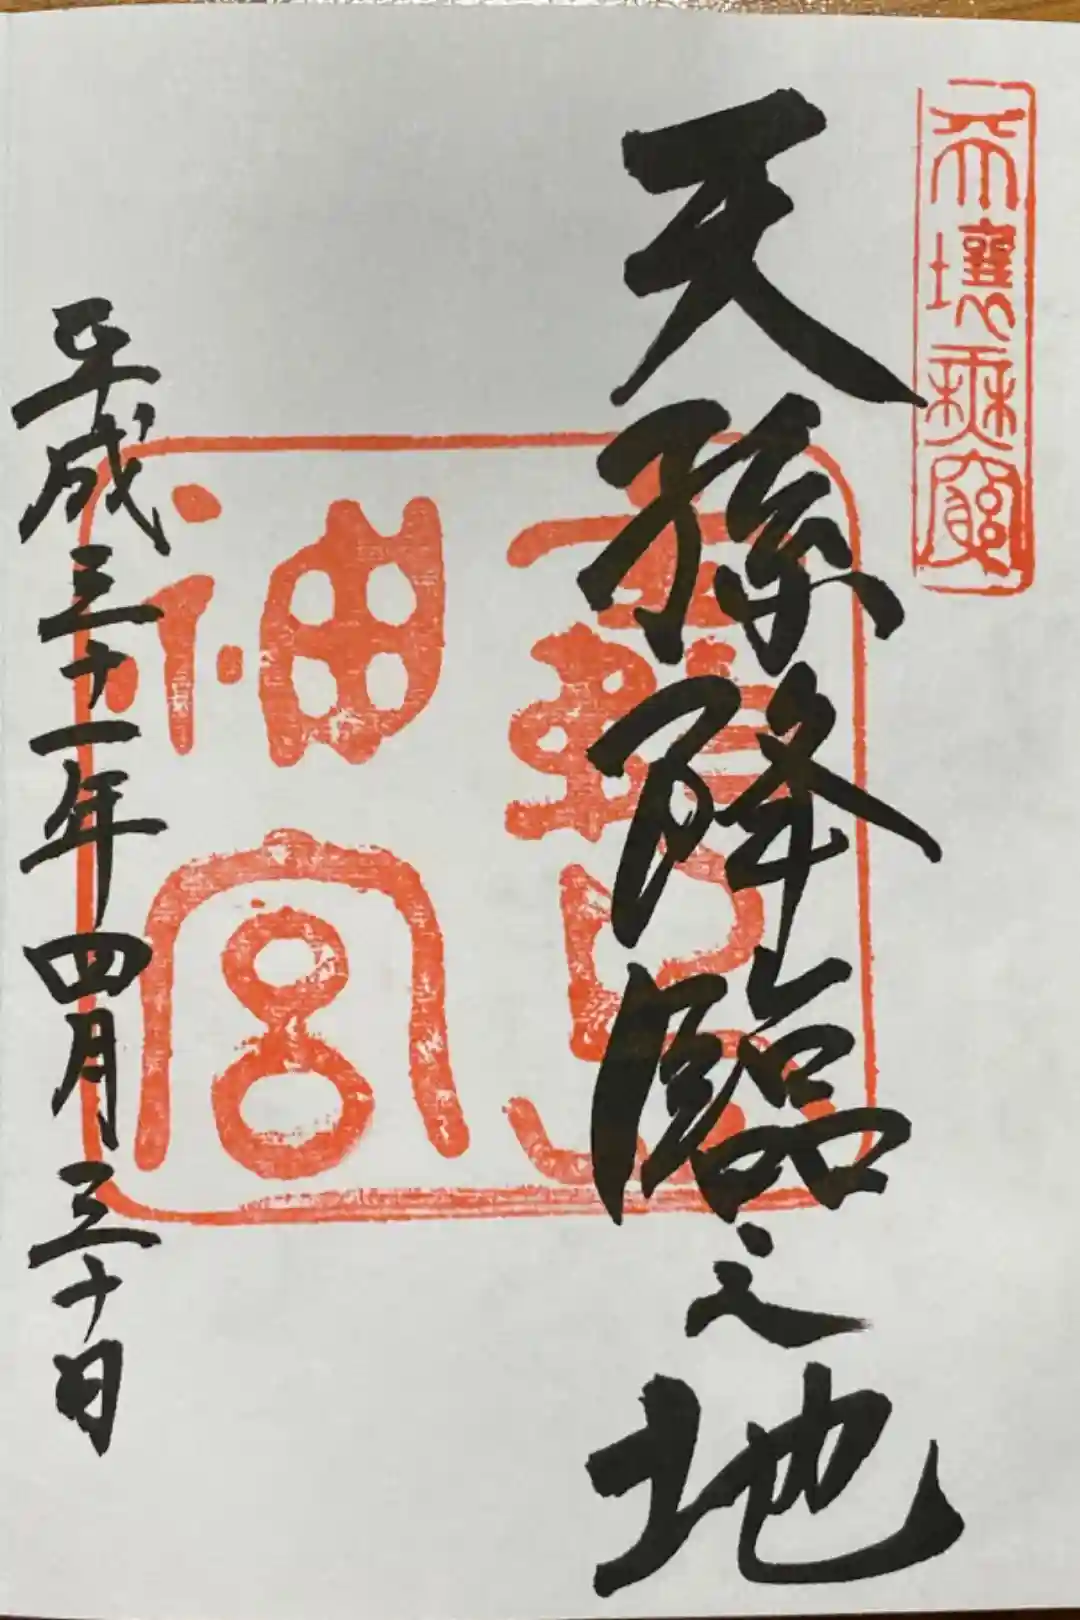 天壤無窮
天孫降臨之地
霧島
神宮
平成三十一年四月三十日